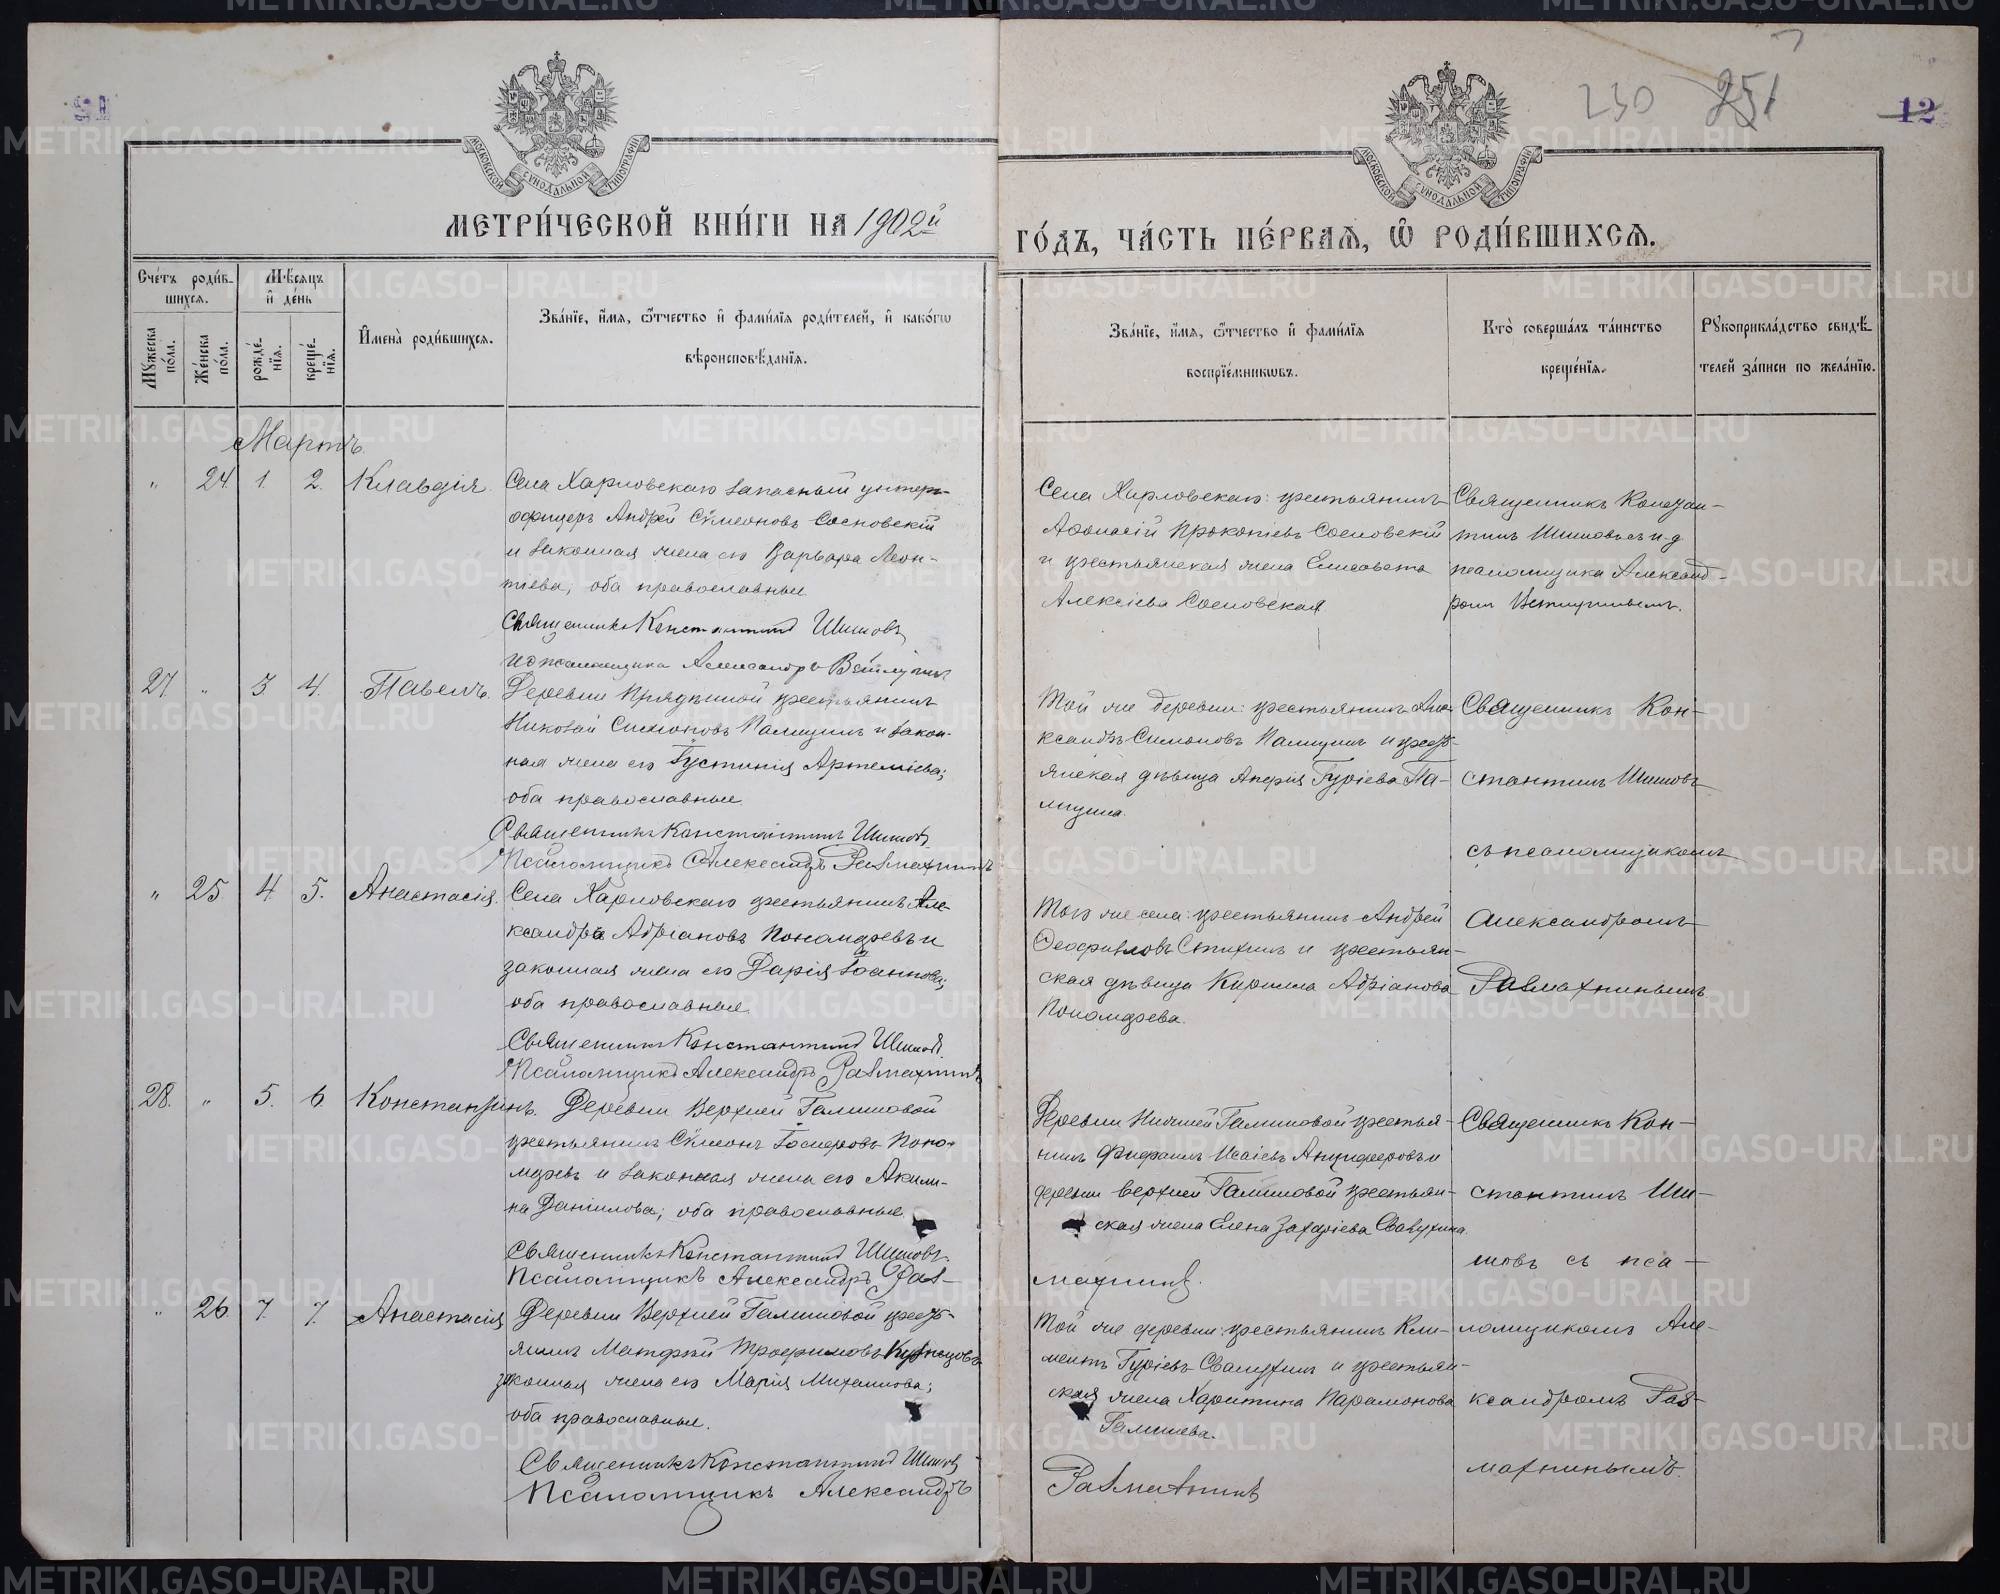 230 251
12
МОСКОВСКОЙ СѴНОДАЛЬНОЙ ТИПОГРАФІИ
МОСКОВСКОЙ СѴНОДАЛЬНОЙ ТИПОГРАФІИ
МЕТРИ́ЧЕСКОЙ КНИ́ГИ НА 1902й
ГО́ДЪ, ЧА́СТЬ ПЕ́РВАѦ, Ѡ҆ РОДИ́ВШИХСѦ.
Сче́тъ роди́в-
шихсѧ.
Мѣ́сѧцъ
и҆ де́нь
Мꙋ́жеска по́ла.
Же́нска по́ла.
рожде́-
нїѧ.
креще́-
нїѧ.
И҆мена̀ роди́вшихсѧ.
Зва́нїе, и҆́мѧ, ѻ҆́тчество и҆ фами́лїѧ роди́телей, и҆ како́гѡ
вѣроисповѣ́данїѧ.
Зва́нїе, и҆́мѧ, ѻ҆́тчество и҆ фами́лїѧ
воспрїе́мникѡвъ.
Кто̀ соверша́лъ та́инство
креще́нїѧ.
Рꙋкоприкла́дство свидѣ́-
телей за́писи по жела́нїю.
Мартъ.
" 24. 1. 2. Клавдія.
Села Харловскаго запасный унтеръ-
офицеръ Андрей Сѵмеоновъ Сосновскій
и законная жена его Варвара Леон-
тіева; оба православные
Священникъ Константинъ Шишовъ
И д псаломщика Александръ
Села Харловскаго: крестьянинъ
Аѳонасій Прокопіевъ Сосновскій
и крестьянская жена Елисавета
Алексіева Сосновская
Священникъ Констан-
тинъ Шишовъ съ и.д.
псаломщика Александ-
ромъ
27. " 3 4. Павелъ.
Деревни крестьянинъ
Николай Симоновъ Паницынъ и закон-
ная жена его Іустинія Артеміева;
оба православные
Священникъ Константинъ Шишовъ
Псаломщикъ Александръ Размахнинъ
Той же деревни: крестьянинъ Але-
ксандръ Симоновъ и крестъ-
янская дѣвица Гуріева
Священникъ Кон-
стантинъ Шишовъ
съ псаломщикомъ
Александромъ
Размахнинымъ
" 25. 4. 5. Анастасія.
Села Харловскаго крестьянинъ Але-
ксандръ Адріановъ Пономаревъ и
законная жена его Дарія Іоаннова;
оба православные
Священникъ Константинъ Шишовъ
Псаломщикъ Александръ Размахнинъ
Того же села: крестьянинъ Андрей
Ѳеофиловъ и крестьян-
ская дѣвица Адріанова
Пономарева.
28. " 5. 6. Константинъ.
Деревни Верхней Галишовой
крестьянинъ Сѵмеонъ Іосифовъ Поно-
маревъ и законная жена его Акили-
на Даніилова; оба православные.
Священникъ Константинъ Шишовъ
Псаломщикъ Александръ Раз-
махнинъ.
Деревни Нижней Галишовой крестья-
нинъ Исаіевъ Анциферовъ и
деревни Верхней Галишовой крестьян-
ская жена Елена Захаріева
Священникъ Кон-
стантинъ Ши-
шовъ съ пса-
ломщикомъ Але-
ксандромъ Раз-
махнинымъ.
" 26. 7. 7. Анастасія
Деревни Верхней Галишовой крестъ-
янинъ Матѳей Трофимовъ Кузнецовъ
законная жена его Марія Михаилова;
оба православные.
Священникъ Константинъ Шишовъ
Псаломщикъ Александръ
Размахнинъ
Той же деревни: крестьянинъ Кли-
ментъ Гуріевъ и крестьян-
ская жена Харитина Парамонова
Галишева.